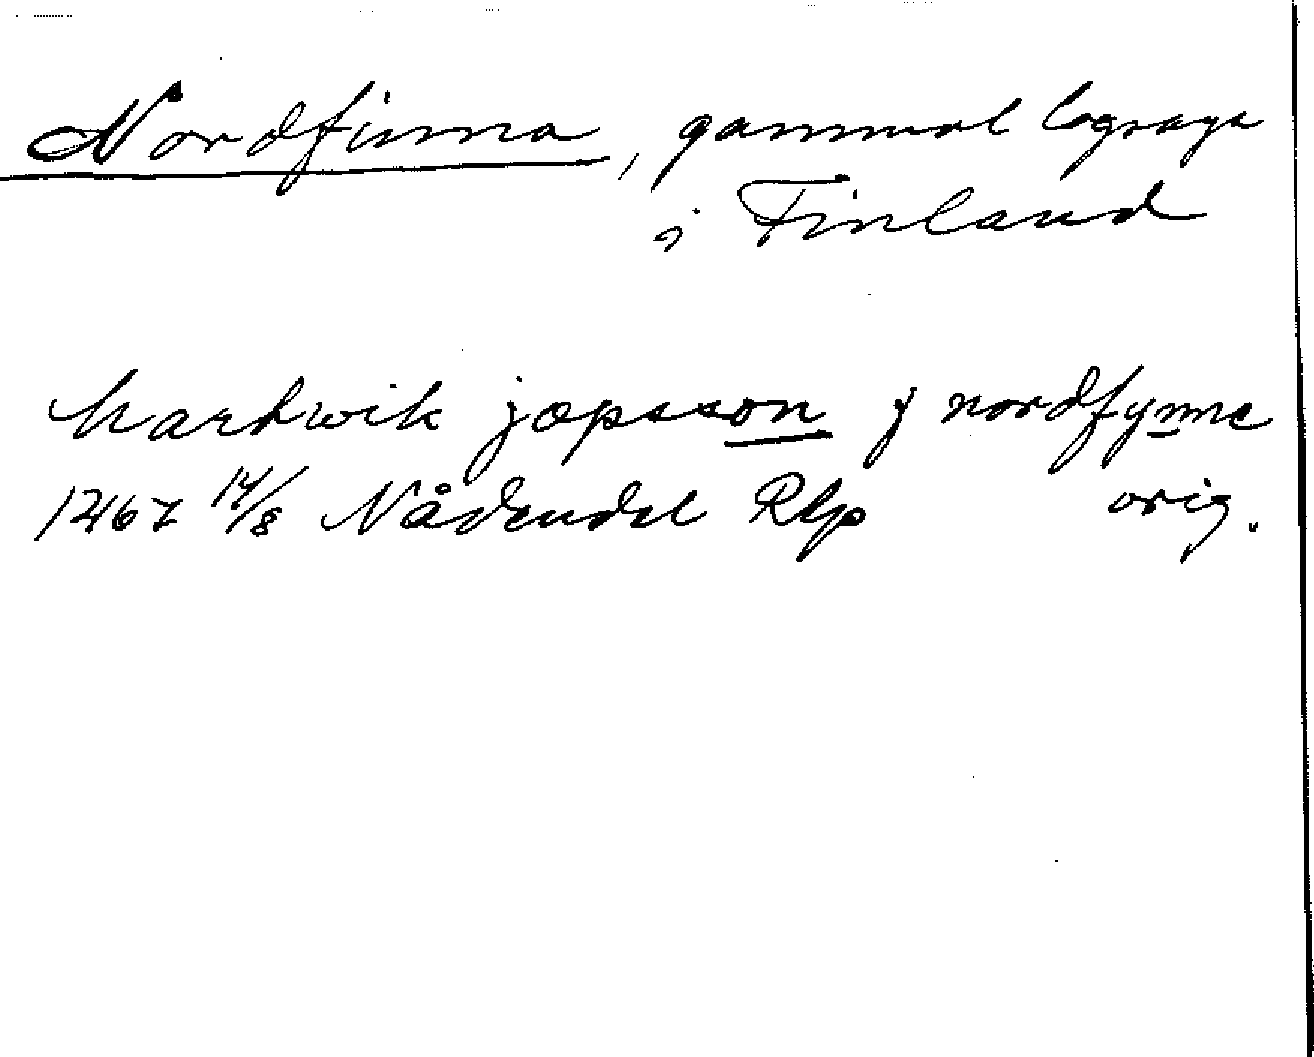 Nordfinna, gammal lagsaga
i Finland
hartwik jopsson j nordfynne
1467 14/8 Nådendal Rlp orig.